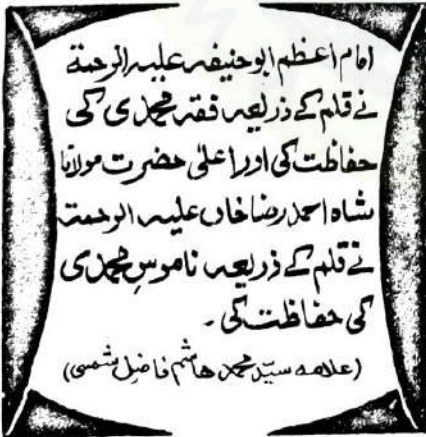 امام اعظم ابو حنیفہ علیہ الرحمۃ
نے قلم کے ذریعہ فقہ محمدی کی
حفاظت کی اور اعلیٰ حضرت مولانا
شاہ احمد رضا خاں علیہ الرحمۃ
نے قلم کے ذریعہ ناموسِ محمدی
کی حفاظت کی۔
(علامہ سیّد محمد ہاشم فاضل شمسی)